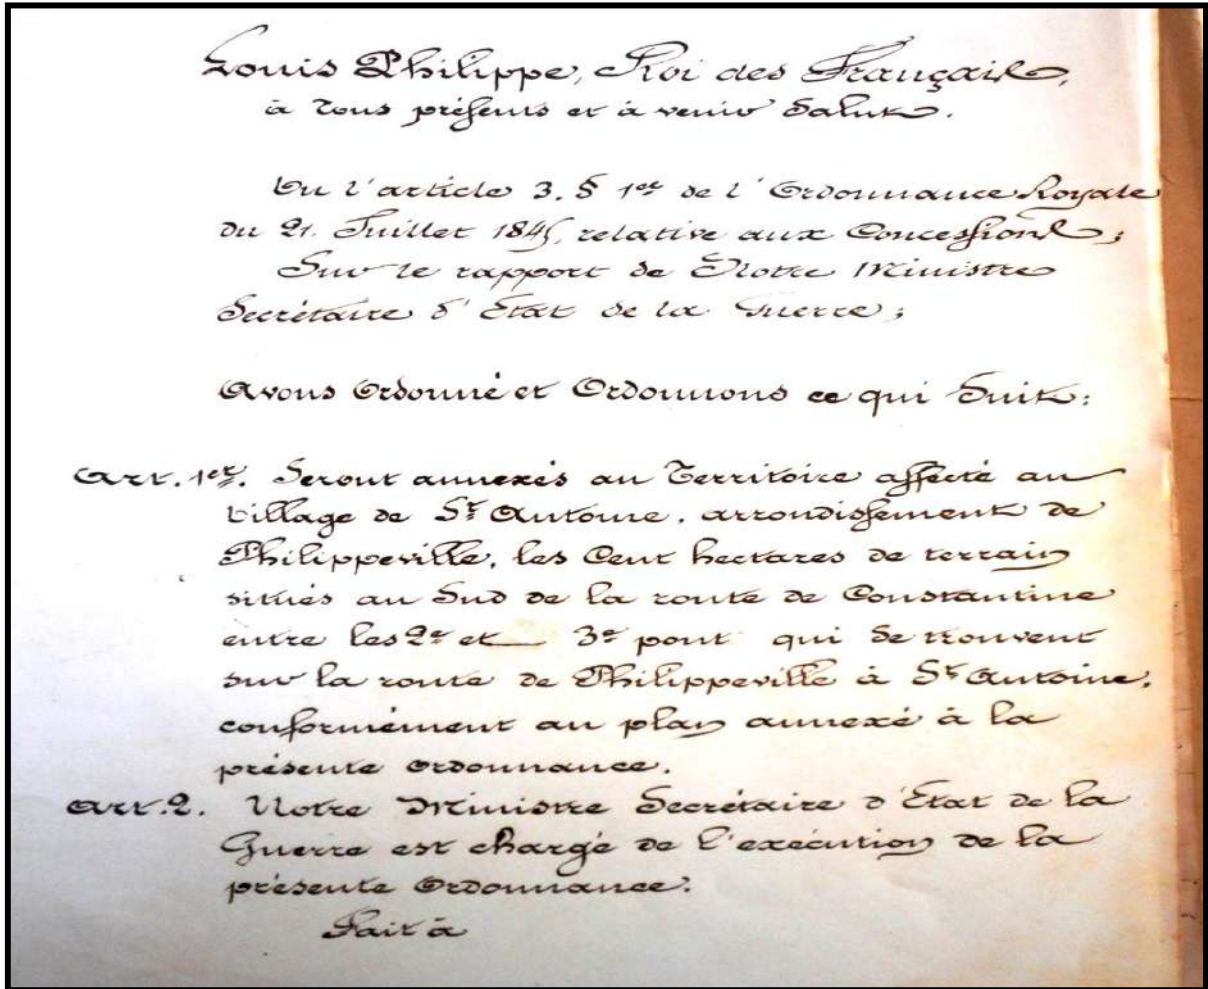 Louis Philippe, Roi des Français,
à tous présents et à venir Salut.
Vu l'article 3. § 1er de l'Ordonnance Royale
du 21. Juillet 1845, relative aux Concessions;
Sur le rapport de Notre Ministre
Secrétaire d'Etat de la Guerre;
Avons Ordonné et Ordonnons ce qui Suit:
Art. 1er. Seront annexés au Territoire affecté au
village de St Antoine, arrondissement de
Philippeville, les Cent hectares de terrain
situés au Sud de la route de Constantine
entre les 2e et 3e pont qui se trouvent
sur la route de Philippeville à St Antoine;
conformément au plan annexé à la
présente ordonnance.
Art. 2. Notre Ministre Secrétaire d'Etat de la
Guerre est chargé de l'exécution de la
présente Ordonnance.
Fait à